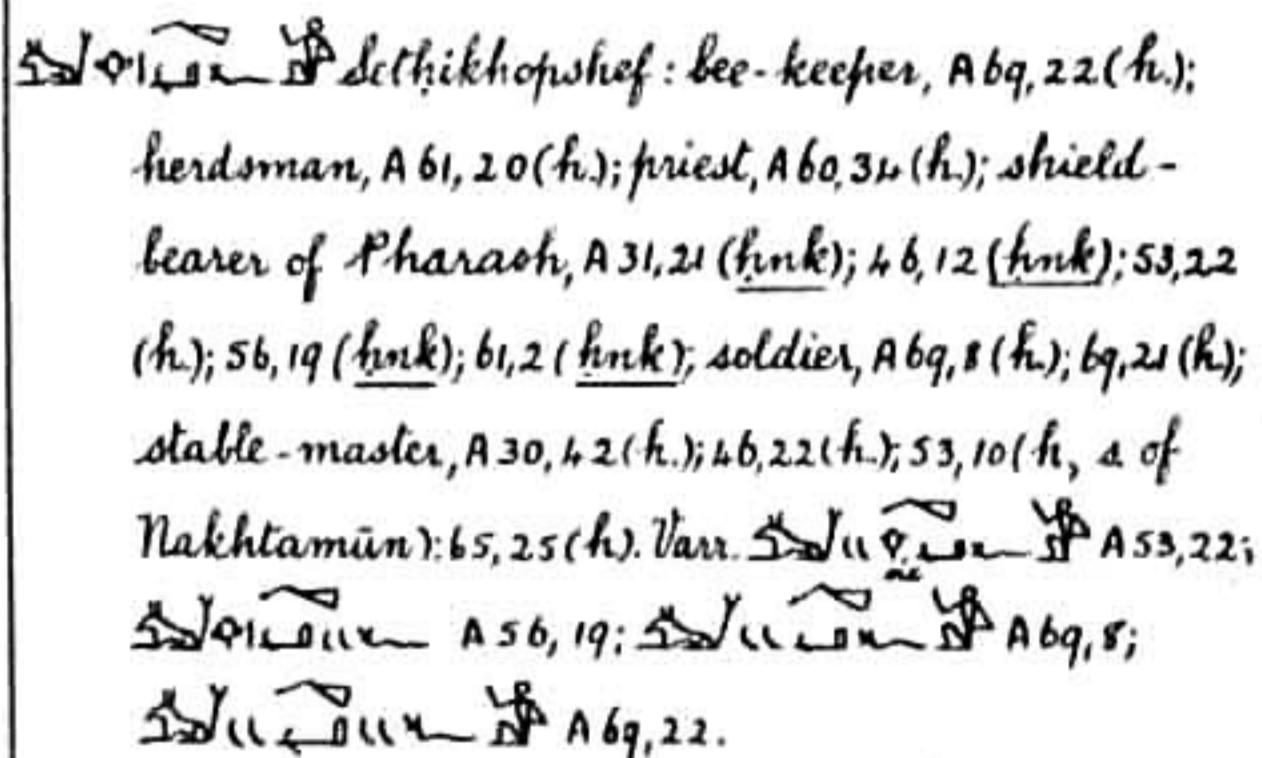 Setḥikhopshef: bee-keeper, A 69, 22 (h.);
herdsman, A 61, 20 (h.); priest, A 60, 34 (h.); shield-
bearer of Pharaoh, A 31, 21 (ḥnk); 46, 12 (ḥnk); 53, 22
(h.); 56, 19 (ḥnk); 61, 2 (ḥnk); soldier, A 69, 8 (h.); 69, 21 (h);
stable-master, A 30, 42 (h.); 46, 22 (h.); 53, 10 (h, s of
Nakhtamūn): 65, 25 (h). Varr. A 53, 22;
A 56, 19; A 69, 8;
A 69, 22.